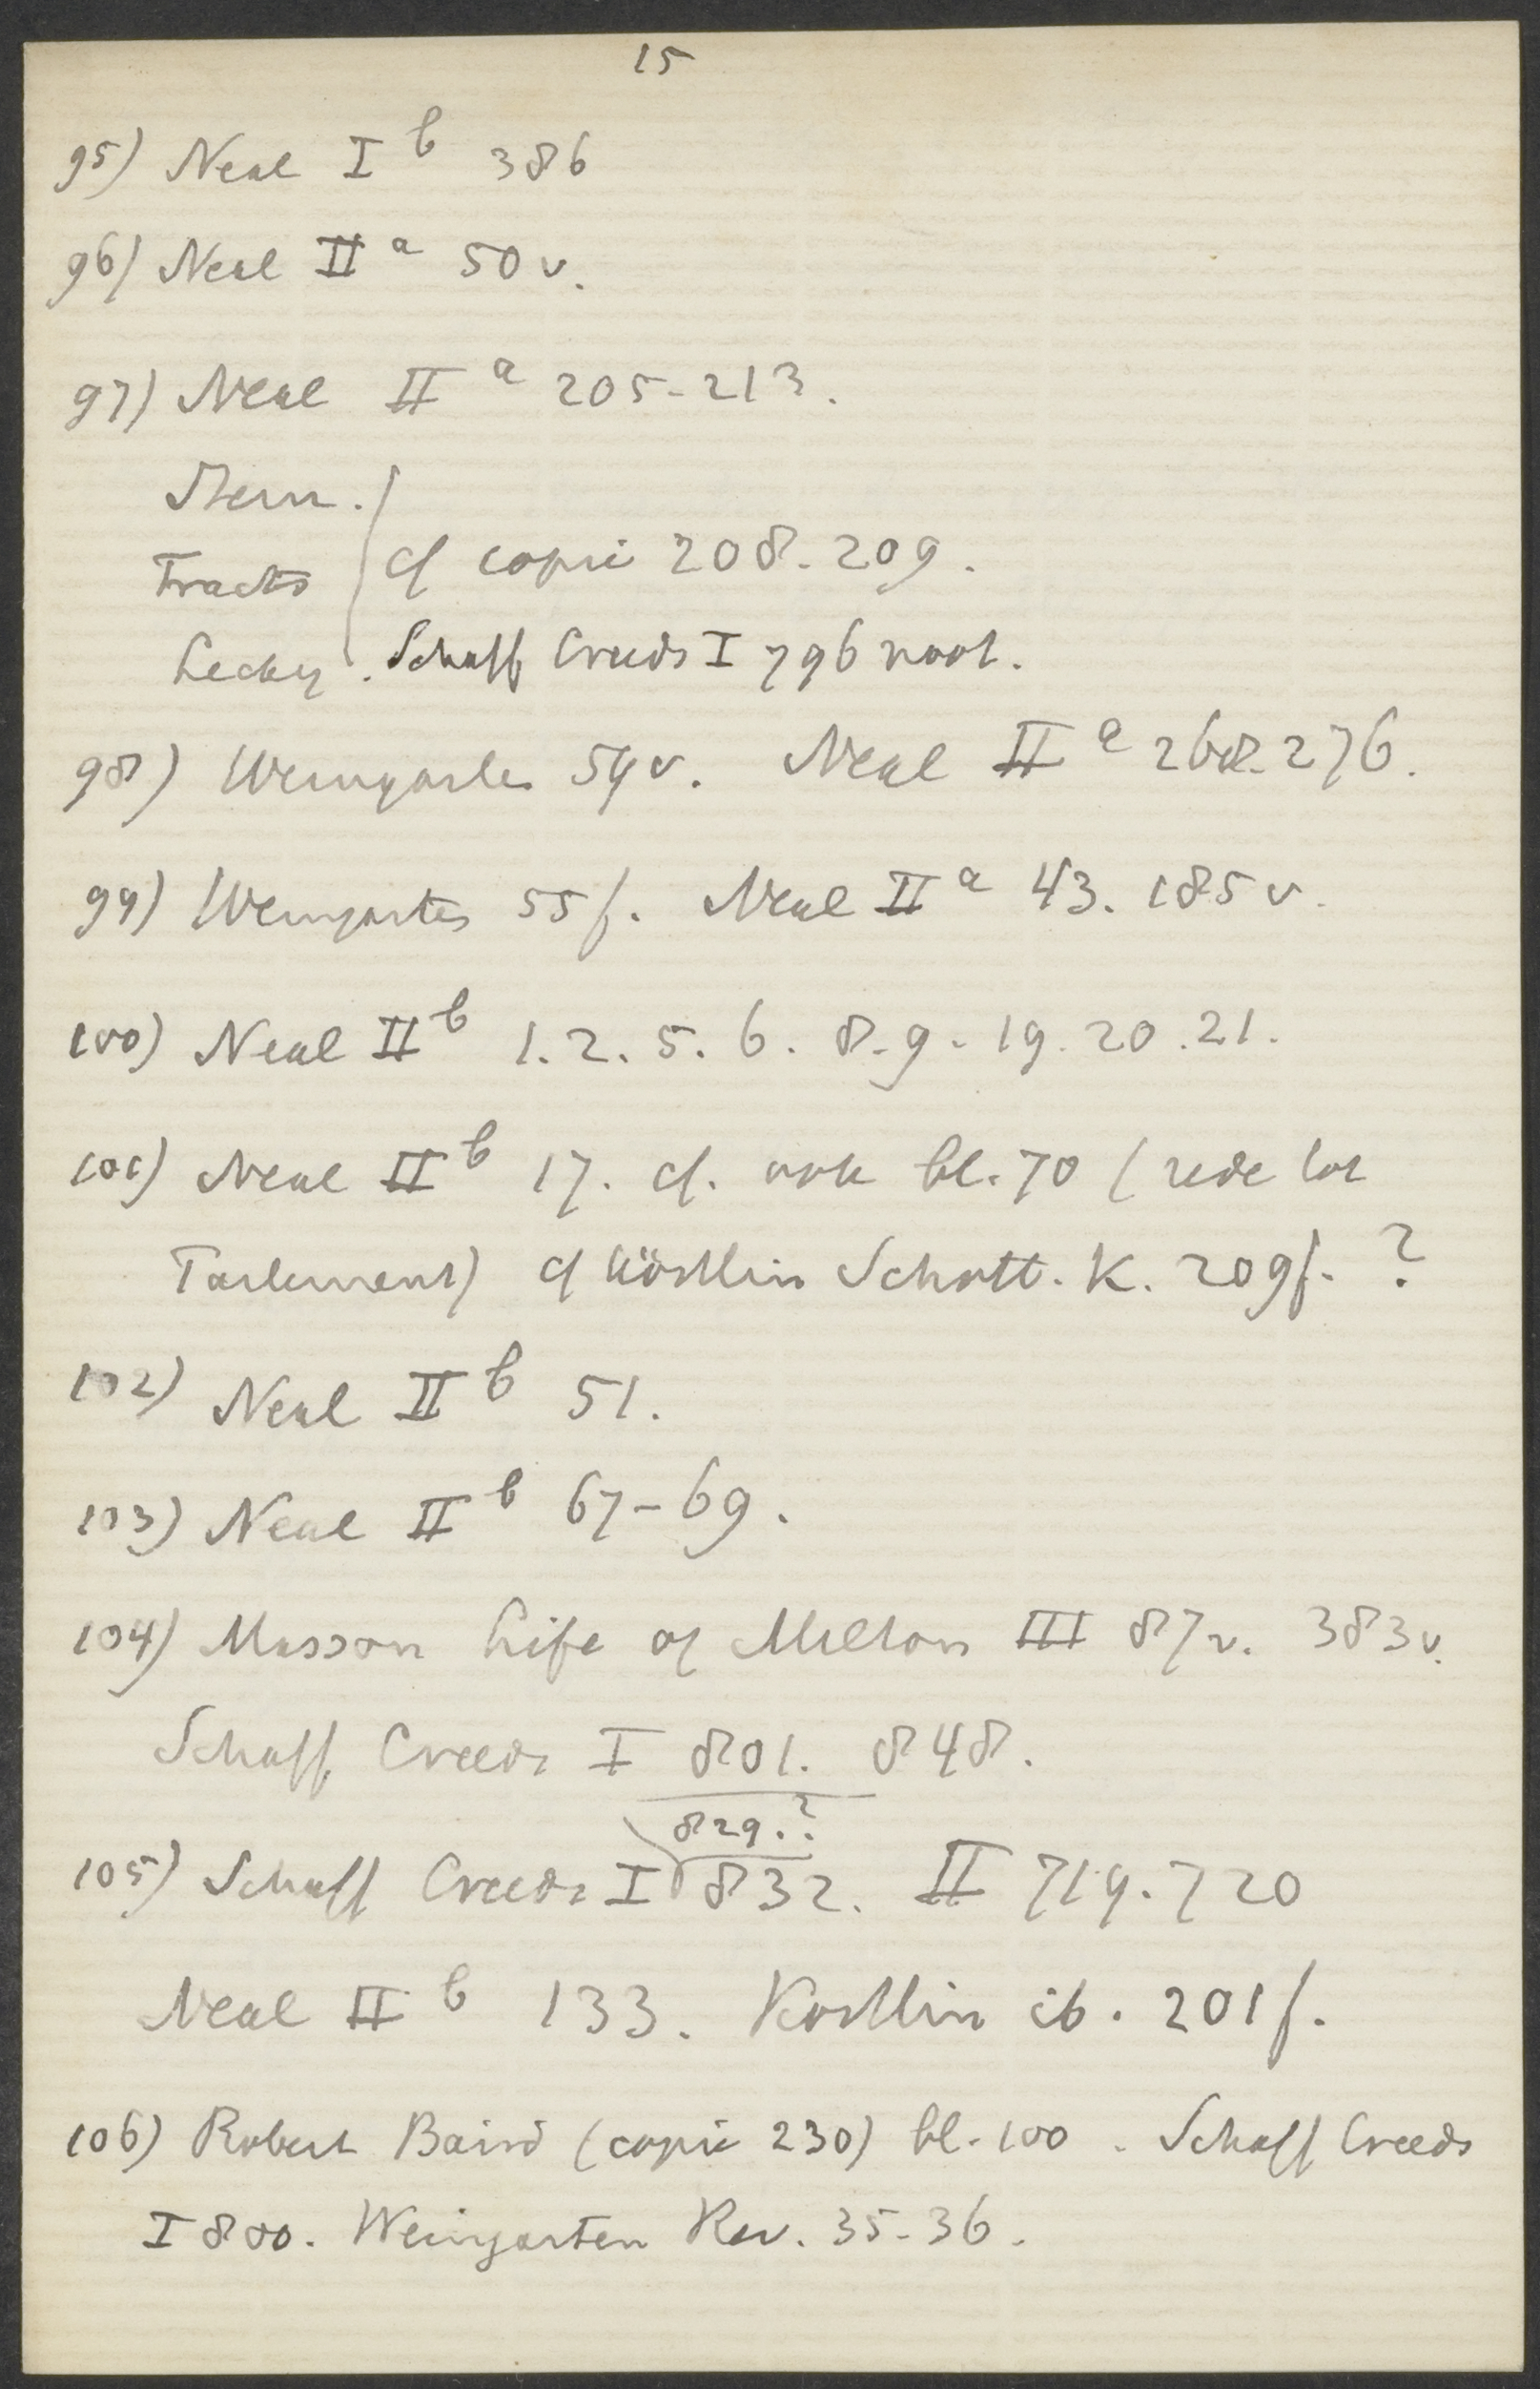 15
95) Neal I b 386
96) Neal II a 50 v.
97) Neal II a 205-213.
Stern.
Tracts cf copie 208. 209.
Lecky. Schaff Creeds I 796 noot.
98) Weingarten 54v. Neal II a 268-276.
99) Weingarten 55 f. Neal II a 43. 185 v.
100) Neal II b 1. 2. 5. 6. 8. 9. 19. 20. 21.
101) Neal II b 17. cf. ook bl. 70 (rede tot
Parlement) cf Köstlin Schott. K. 209f. ?
102) Neal II b 51.
103) Neal II b 67-69.
104) Masson Life of Milton III 87v. 383v.
Schaff Creeds I 801. 848.
829.?
105) Schaff Creeds I 832. II 719. 720
Neal II b 133. Kostlin ib. 201 f.
106) Robert Baird (copie 230) bl. 100. Schaff Creeds
I 800. Weingarten Rev. 35-36.